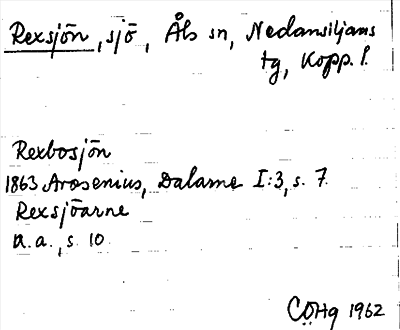 Rexsjön, sjö, Åls sn, Nedansiljans
tg, Kopp. l.
Rexbosjön
1863 Arosenius, Dalarne I:3, s. 7.
Rexsjöarne
a. a., s. 10
CÖHg 1962